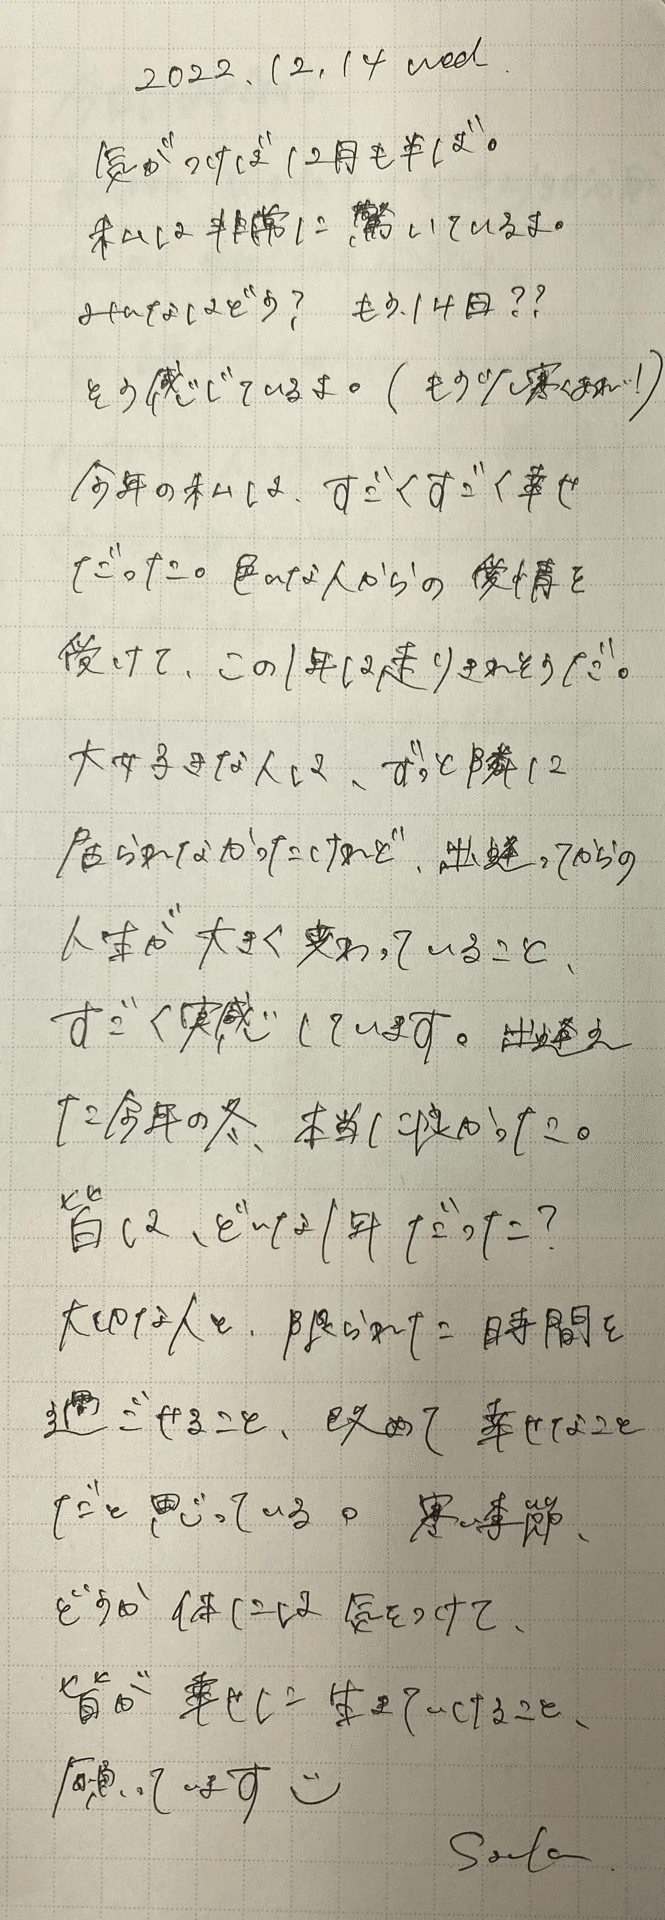 2022.12.14 wed.
気がつけば12月も半ば。
私は非常に驚いているよ。
みんなはどう? もう、14日??
そう感じているよ。(もう少し寒くあれ!)
今年の私は、すごくすごく幸せ
だった。色んな人からの愛情を
受けて、この1年は走りきれそうだ。
大好きな人は、ずっと隣に
居られなかったけれど、出逢ってからの
人生が大きく変わっていること、
すごく実感しています。出逢え
た今年の冬、本当に良かった。
皆は、どんな1年だった?
大切な人と、限られた時間を
過ごせること、改めて幸せなこと
だと思っている。寒い季節、
どうか体には気をつけて、
皆が幸せに生きていけること、
願っています